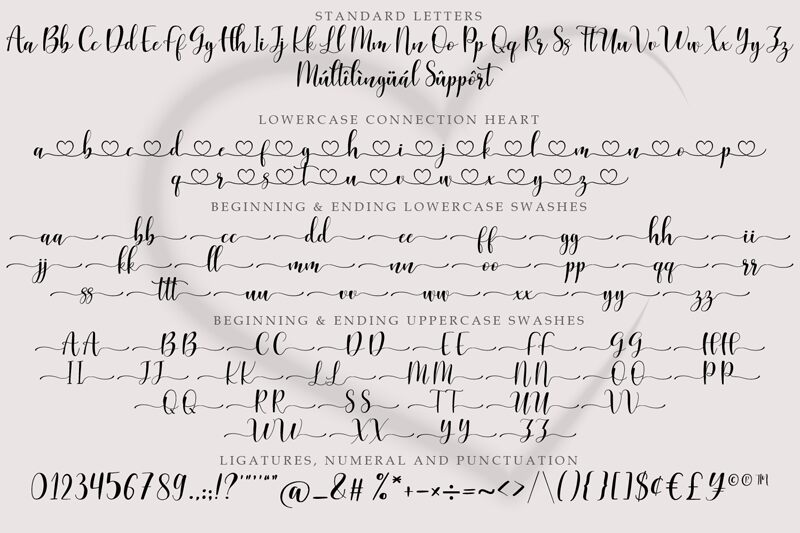 STANDARD LETTERS
Aa Bb Cc Dd Ee Ff Gg Hh Ii Jj Kk Ll Mm Nn Oo Pp Qq Rr Ss Tt Uu Vv Ww Xx Yy Zz
Múltîlìngüál Sûppôrt
LOWERCASE CONNECTION HEART
a♡b♡c♡d♡e♡f♡g♡h♡i♡j♡k♡l♡m♡n♡o♡p♡
q♡r♡s♡t♡u♡v♡w♡x♡y♡z♡
BEGINNING & ENDING LOWERCASE SWASHES
aa bb cc dd ee ff gg hh ii
jj kk ll mm nn oo pp qq rr
ss ttt uu vv ww xx yy zz
BEGINNING & ENDING UPPERCASE SWASHES
AA BB CC DD EE FF GG HH
II JJ KK LL MM NN OO PP
QQ RR SS TT UU VV
WW XX YY ZZ
LIGATURES, NUMERAL AND PUNCTUATION
0123456789.,:;!?'"''“”@_&# %*+-×÷=~<>/\(){}[]$¢€£¥©®™